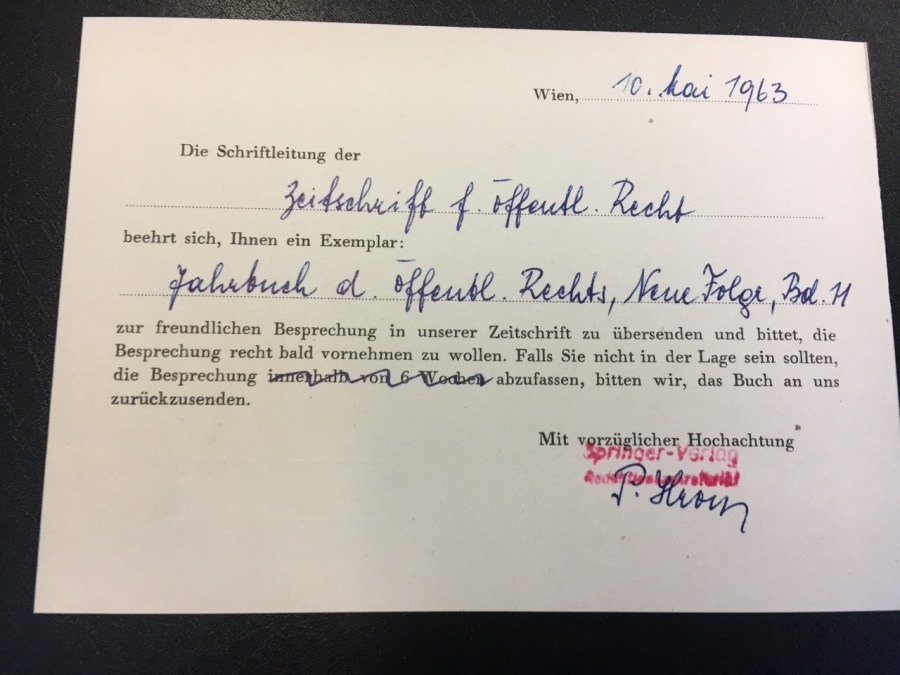 Wien, 10. Mai 1963
Die Schriftleitung der
Zeitschrift f. öffentl. Recht
beehrt sich, Ihnen ein Exemplar:
Jahrbuch d. öffentl. Rechts, Neue Folge, Bd. 11
zur freundlichen Besprechung in unserer Zeitschrift zu übersenden und bittet, die
Besprechung recht bald vornehmen zu wollen. Falls Sie nicht in der Lage sein sollten,
die Besprechung innerhalb von 6 Wochen abzufassen, bitten wir, das Buch an uns
zurückzusenden.
Mit vorzüglicher Hochachtung
Springer-Verlag
P.